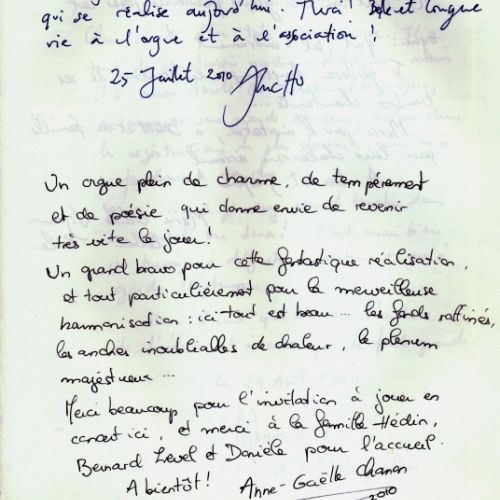 qui se réalise aujourd'hui. Merci! Belle et longue
vie à l'orgue et à l'association!
25 Juillet 2010
Un orgue plein de charme, de tempérament
et de poésie, qui donne envie de revenir
très vite le jouer!
Un grand bravo pour cette fantastique réalisation,
et tout particulièrement pour la merveilleuse
harmonisation : ici tout est beau... les fonds raffinés,
les anches inoubliables de chaleur, le plenum
majestueux...
Merci beaucoup pour l'invitation à jouer en
concert ici, et merci à la famille Hédin,
Bernard Level et Danièle pour l'accueil.
A bientôt! Anne-Gaëlle Chanon
2010